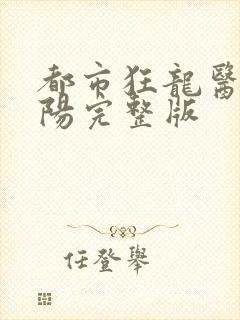 都市狂龍醫
陽完整版
任登舉